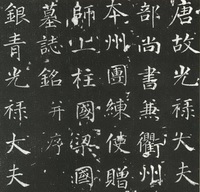 唐故光禄大夫
部尚書兼衢州
本州團練使贈
師上柱國梁國
墓誌銘并序
銀青光禄大夫